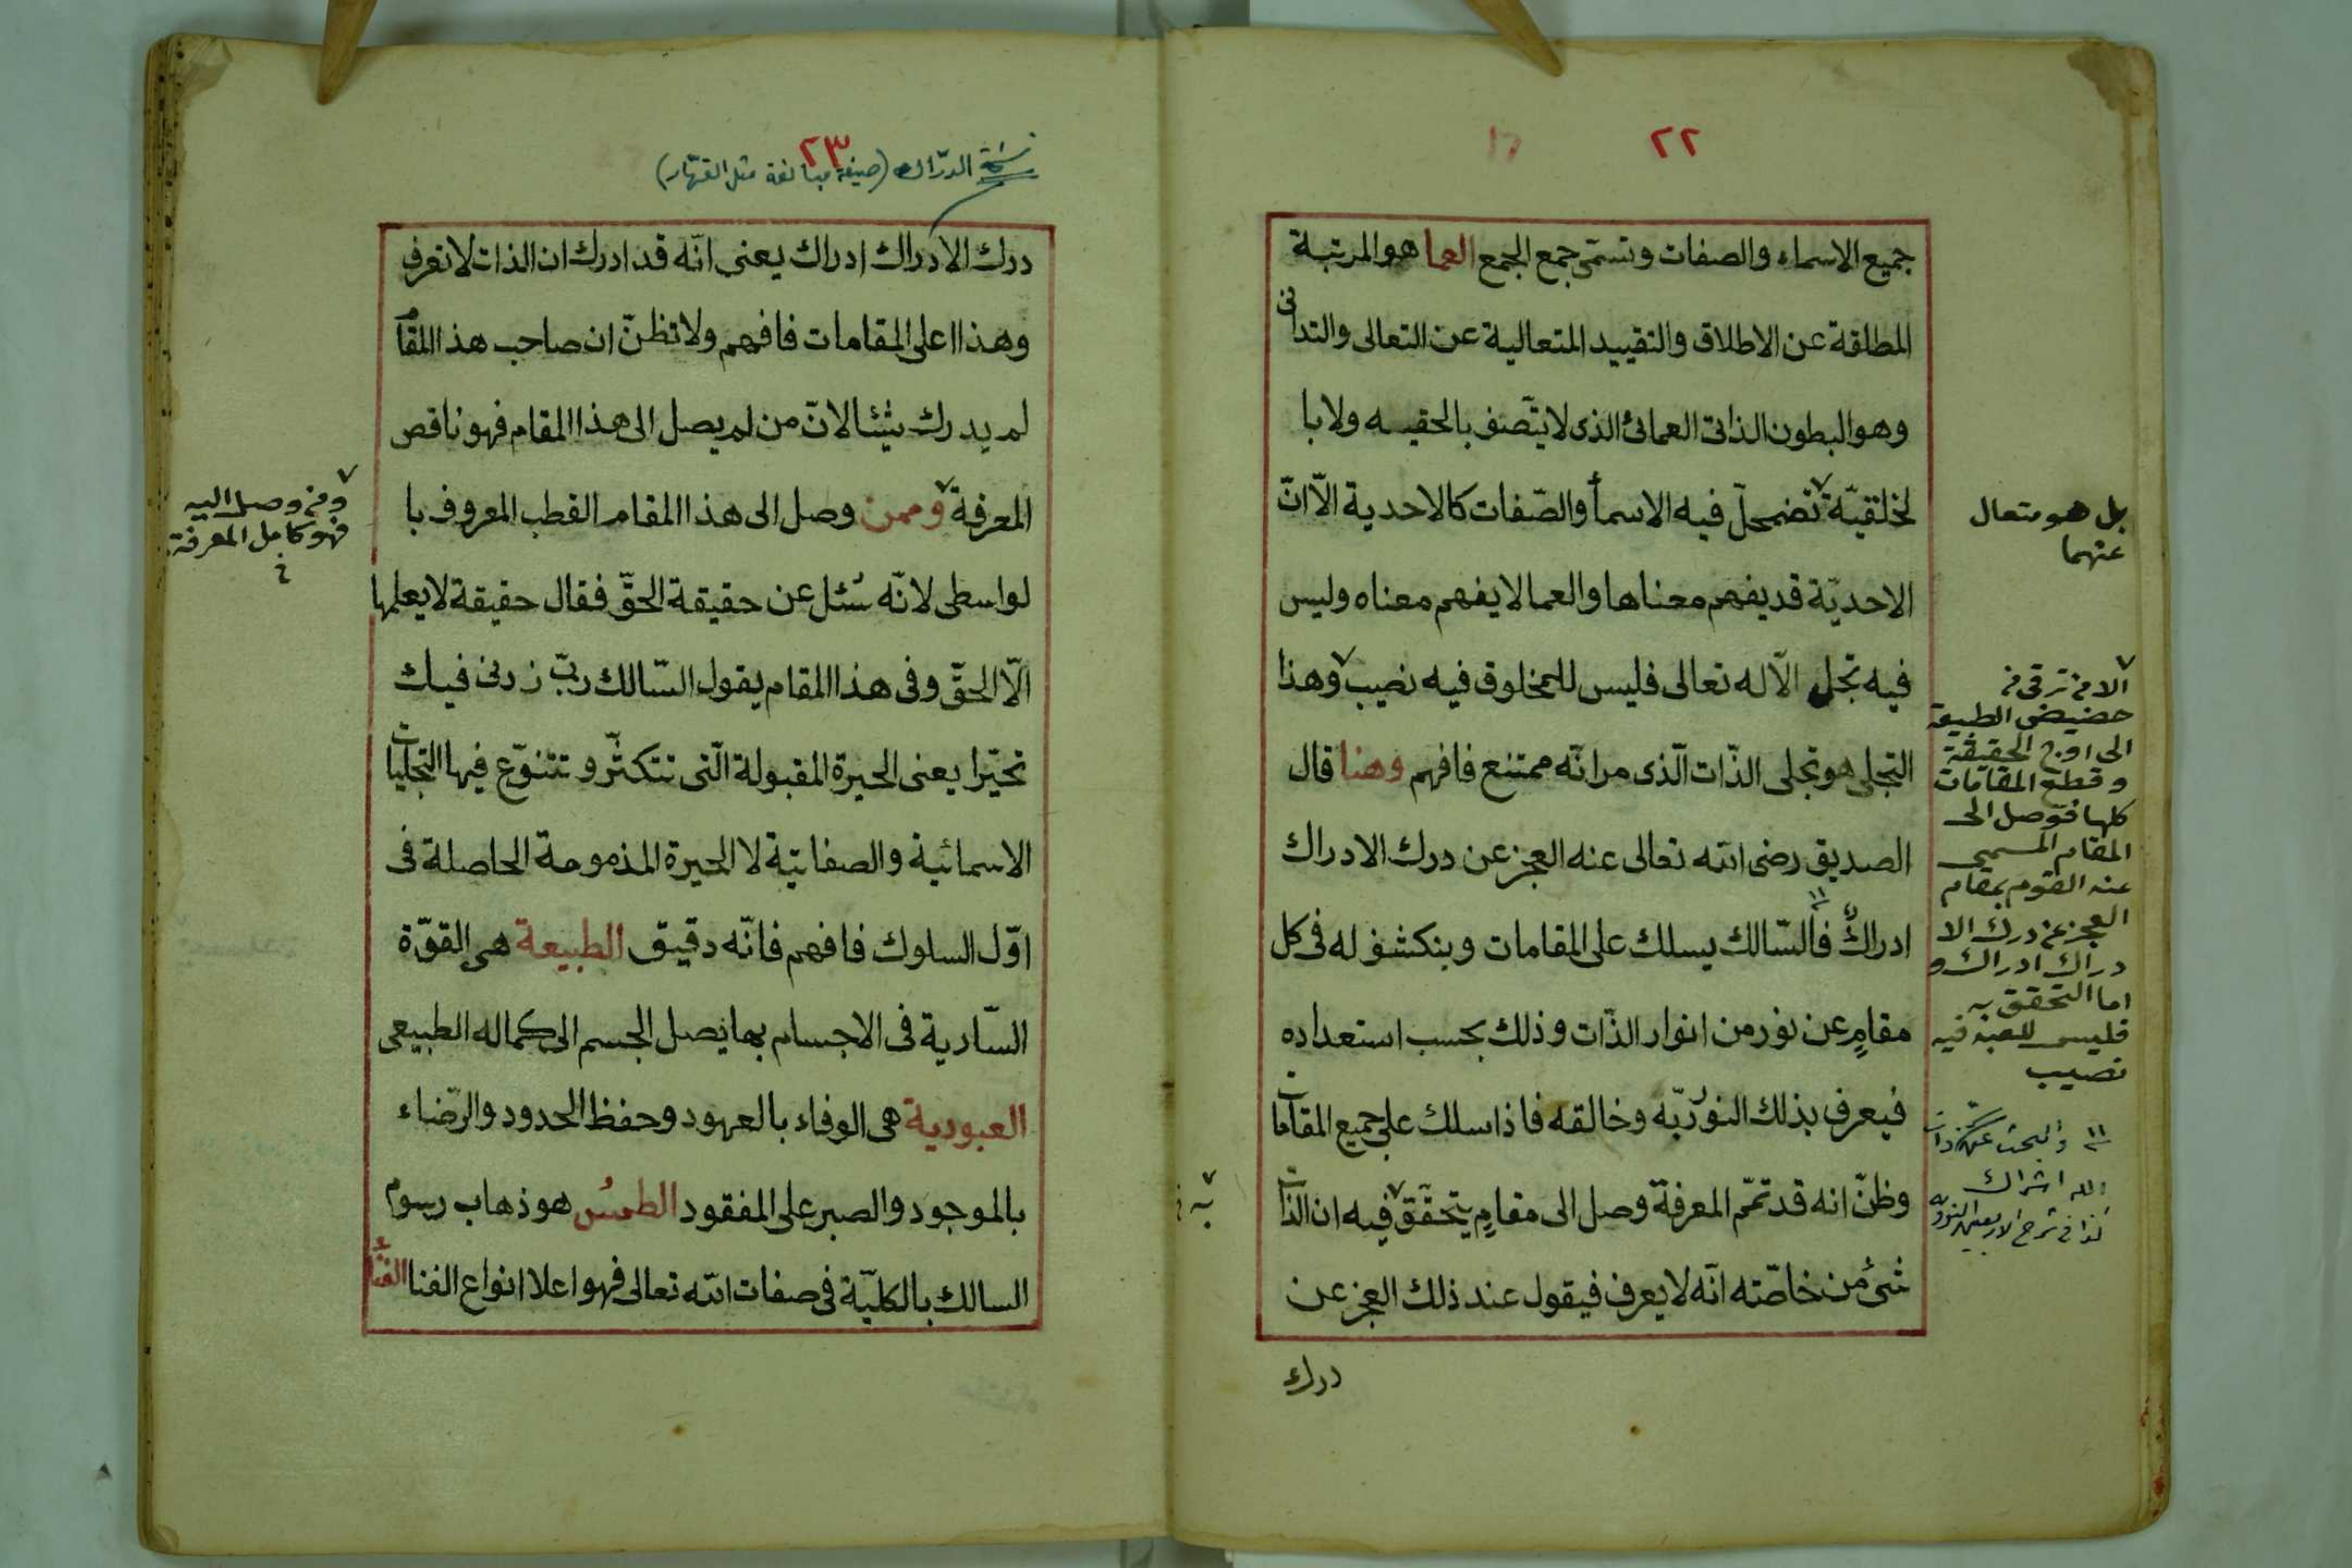 ٢٢
جميع الاسماء والصفات وتسمّى جمع الجمع العما هو المرتبة
المطلقة عن الاطلاق والتقييد المتعالية عن التعالى والتدانى
وهو البطون الذاتى العمائى الذى لا يتّصف بالحقيه ولا با
لخلقيّة تضمحلّ فيه الاسمأ والصّفات كالاحدية الّا انّ
الاحديّة قد يفهم معناها والعما لا يفهم معناه وليس
فيه تجلى الّا له تعالى فليس للمخلوق فيه نصيب وهذا
التجلى هو تجلى الذّات الّذى مر انّه ممتنع فافهم وهنا قال
الصديق رضى الله تعالى عنه العجز عن درك الادراك
ادراك فالسّالك يسلك على المقامات وينكشف له فى كل
مقامٍ عن نور من انوار الذّات وذلك بحسب استعداده
فيعرف بذلك النور ربّه وخالقه فاذا سلك على جميع المقامات
وظنّ انه قد تمّم المعرفة وصل الى مقامٍ يتحقّق فيه ان الذات
شئ من خاصّته انّه لا يعرف فيقول عند ذلك العجز عن
درك
بل هو متعال
عنهما
الا من ترقى من
حضيض الطبيعة
الى اوج الحقيقة
وقطع المقامات
كلها فوصل الى
المقام المسمى
عند القوم بمقام
العجز عن درك الا
دراك ادراك و
اما التحقق به
فليس للعبد فيه
نصيب
والبحث عن ذات
الله اشراك
كذا فى شرح الاربعين النووية
به
٢٣
نسخة الدرّاك (صيغة مبالغة مثل القهّار)
درك الادراك ادراك يعنى انّه قد ادرك ان الذات لا تعرف
وهذا اعلى المقامات فافهم ولا تظنّ ان صاحب هذا المقام
لم يدرك شيئا لانّ من لم يصل الى هذا المقام فهو ناقص
المعرفة وممن وصل الى هذا المقام القطب المعروف با
لواسطى لانّه سئل عن حقيقة الحقّ فقال حقيقة لا يعلمها
الّا الحقّ وفى هذا المقام يقول السّالك ربّ زدنى فيك
تحيّرا يعنى الحيرة المقبولة الّتى تتكثّر وتتنوّع فيها التجليات
الاسمائية والصفاتيّة لا الحيرة المذمومة الحاصلة فى
اوّل السلوك فافهم فانّه دقيق الطبيعة هى القوّة
السّارية فى الاجسام بها يصل الجسم الى كماله الطبيعى
العبودية هى الوفاء بالعهود وحفظ الحدود والرّضاء
بالموجود والصبر على المفقود الطمس هو ذهاب رسوم
السالك بالكليّة فى صفات الله تعالى فهو اعلا انواع الفنا الفنأ
ومن وصل اليه
فهو كامل المعرفة